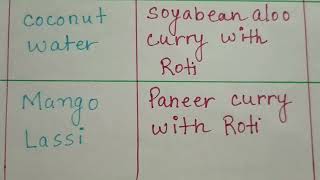 coconut
water
soyabean aloo
curry with
Roti
Mango
Lassi
Paneer curry
with Roti